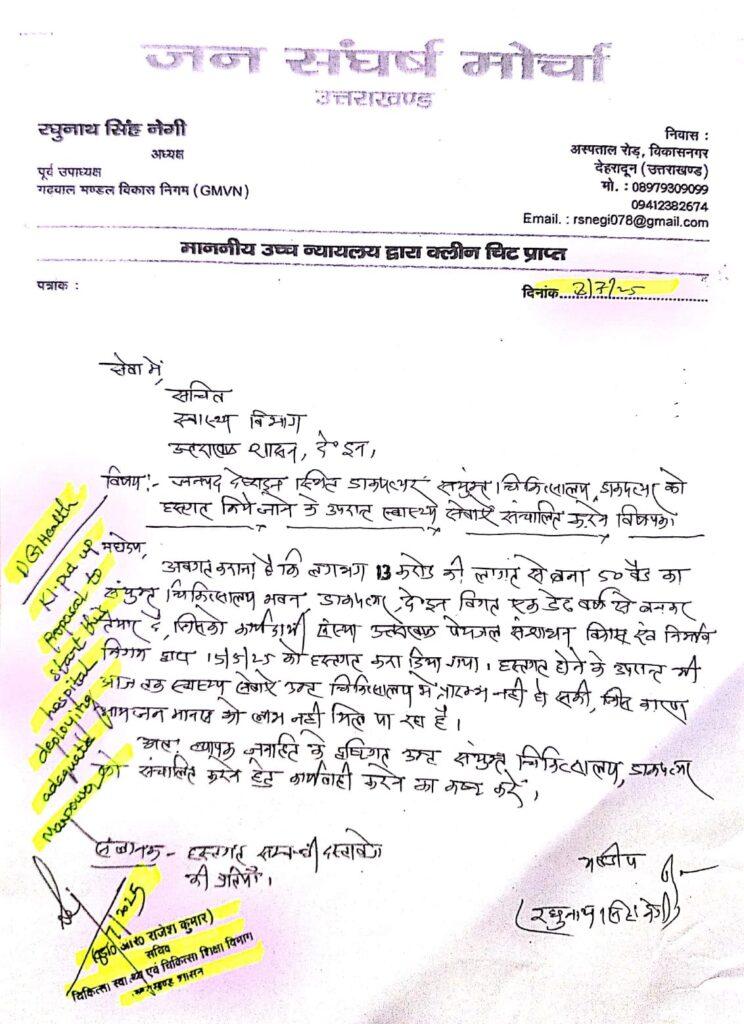 जन संघर्ष मोर्चा
उत्तराखण्ड
रघुनाथ सिंह नेगी
अध्यक्ष
पूर्व उपाध्यक्ष
गढ़वाल मण्डल विकास निगम (GMVN)
निवास :
अस्पताल रोड़, विकासनगर
देहरादून (उत्तराखण्ड)
मो. : 08979309099
09412382674
Email. : rsnegi078@gmail.com
माननीय उच्च न्यायलय द्वारा क्लीन चिट प्राप्त
पत्रांक :
दिनांक 2/7/25
सेवा में,
सचिव
स्वास्थ्य विभाग
उत्तराखण्ड शासन, दे०दून,
विषय:- जनपद देहरादून स्थित डाकपत्थर संयुक्त चिकित्सालय, डाकपत्थर को
हस्तगत किये जाने के उपरान्त स्वास्थ्य सेवाएं संचालित करने विषयक।
महोदय,
अवगत कराना है कि लगभग 13 करोड़ की लागत से बना 50 बैड का
संयुक्त चिकित्सालय भवन, डाकपत्थर, दे०दून विगत एक डेढ़ वर्ष से बनकर
तैयार है, जिसको कार्यदायी संस्था उत्तराखण्ड पेयजल संसाधन विकास एवं निर्माण
निगम द्वारा 15/5/25 को हस्तगत करा दिया गया। हस्तगत होने के उपरान्त भी
आज तक स्वास्थ्य सेवाएं उक्त चिकित्सालय में प्रारम्भ नहीं हो सकी, जिस कारण
आम जन मानस को लाभ नहीं मिल पा रहा है।
अतः व्यापक जनहित के दृष्टिगत उक्त संयुक्त चिकित्सालय, डाकपत्थर
को संचालित करने हेतु कार्यवाही करने का कष्ट करें।
संलग्नक - हस्तगत सम्बन्धी दस्तावेज
की प्रतियाँ।
भवदीय
(रघुनाथ सिंह नेगी)
DG Health
Kl. put up
proposal to
start this
hospital
deploying
adequate
Manpower
/7/2025
(डा० आर० राजेश कुमार)
सचिव
चिकित्सा स्वास्थ्य एवं चिकित्सा शिक्षा विभाग
उत्तराखण्ड शासन